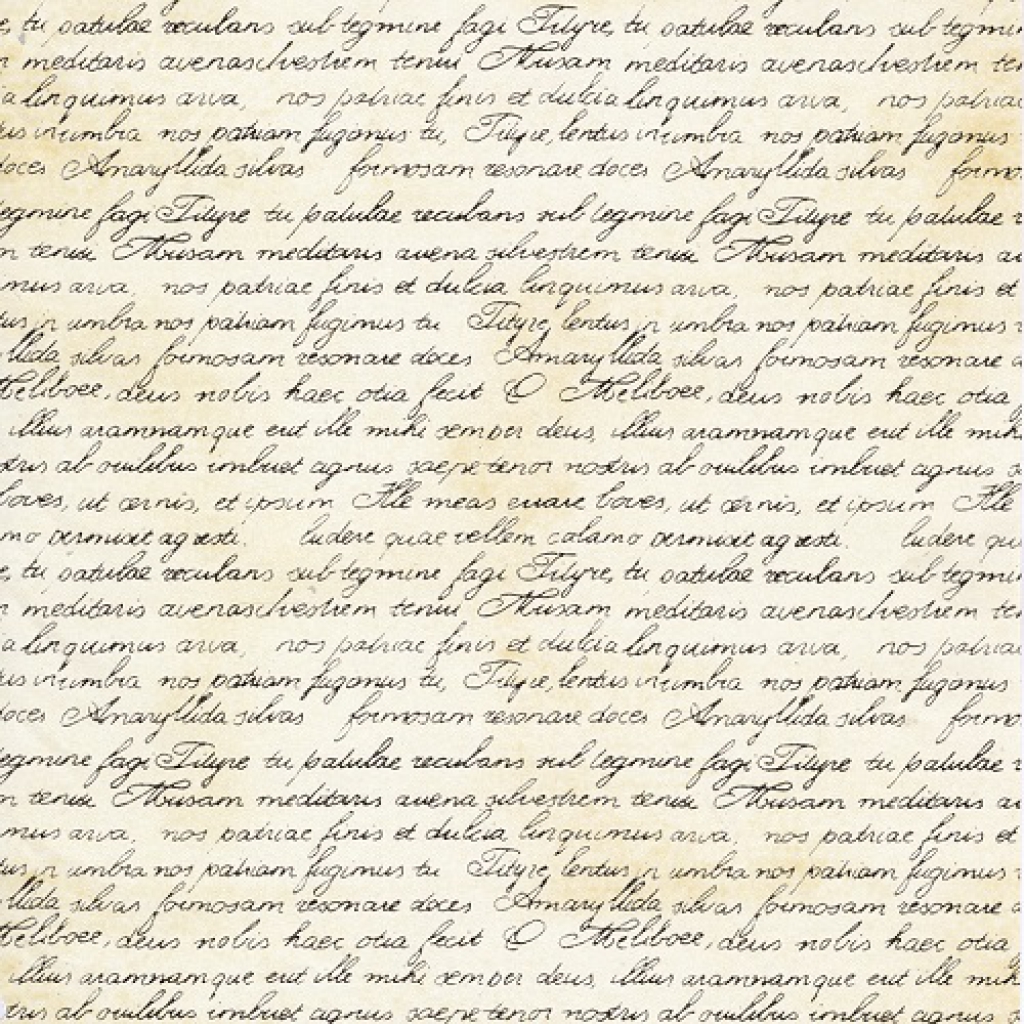 tu patulae recubans sub tegmine fagi Tityre, tu patulae recubans sub tegmin
meditaris avenasilvestrem tenui Musam meditaris avenasilvestrem te
a linquimus arva, nos patriae finis et dulcia linquimus arva, nos patriae
tus in umbra nos patriam fugimus tu, Tityre, lentus in umbra nos patriam fugimus
doces Amaryllida silvas formosam resonare doces Amaryllida silvas formo
egmine fagi Tityre tu patulae recubans sub tegmine fagi Tityre tu patulae r
n tenui Musam meditaris avena silvestrem tenui Musam meditaris av
mus arva, nos patriae finis et dulcia linquimus arva, nos patriae finis et
tus in umbra nos patriam fugimus tu Tityre, lentus in umbra nos patriam fugimus
llida silvas formosam resonare doces Amaryllida silvas formosam resonare d
Meliboee, deus nobis haec otia fecit O Meliboee, deus nobis haec otia
illius aramnamque erit ille mihi semper deus, illius aramnamque erit ille mih
stris ab ovilibus imbuet agnus saepe tener nostris ab ovilibus imbuet agnus s
boves, ut cernis, et ipsum Ille meas errare boves, ut cernis, et ipsum Ille
mo permisit agresti. ludere quae vellem calamo permisit agresti. ludere qu
tu patulae recubans sub tegmine fagi Tityre, tu patulae recubans sub tegmin
meditaris avenasilvestrem tenui Musam meditaris avenasilvestrem te
a linquimus arva, nos patriae finis et dulcia linquimus arva, nos patriae
tus in umbra nos patriam fugimus tu, Tityre, lentus in umbra nos patriam fugimus
doces Amaryllida silvas formosam resonare doces Amaryllida silvas formo
egmine fagi Tityre tu patulae recubans sub tegmine fagi Tityre tu patulae r
n tenui Musam meditaris avena silvestrem tenui Musam meditaris av
mus arva, nos patriae finis et dulcia linquimus arva, nos patriae finis et
tus in umbra nos patriam fugimus tu Tityre, lentus in umbra nos patriam fugimus
llida silvas formosam resonare doces Amaryllida silvas formosam resonare d
Meliboee, deus nobis haec otia fecit O Meliboee, deus nobis haec otia
illius aramnamque erit ille mihi semper deus, illius aramnamque erit ille mih
stris ab ovilibus imbuet agnus saepe tener nostris ab ovilibus imbuet agnus s